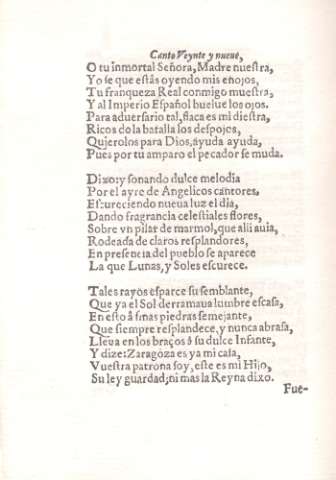 Canto Veynte y nueue,
O tu inmortal Señora, Madre nuestra,
Yo se que estàs oyendo mis enojos,
Tu franqueza Real conmigo muestra,
Y al Imperio Español buelue los ojos.
Para aduersario tal, flaca es mi diestra,
Ricos dola batalla los despojos,
Quierolos para Dios, ayuda, ayuda,
Pues por tu amparo el pecador se muda.
Dixo: y sonando dulce melodia
Por el ayre de Angelicos cantores,
Escureciendo nueua luz el dia,
Dando fragrancia celestiales flores,
Sobre vn pilar de marmol, que alli auia,
Rodeada de claros resplandores,
En presencia del pueblo se aparece
La que Lunas, y Soles escurece.
Tales rayos esparce su semblante,
Que ya el Sol derramaua lumbre escasa,
En esto â finas piedras semejante,
Que siempre resplandece, y nunca abrasa,
Lleua en los braços â su dulce Infante,
Y dize: Zaragoza es ya mi casa,
Vuestra patrona soy, este es mi Hijo,
Su ley guardad; ni mas la Reyna dixo.
Fue-